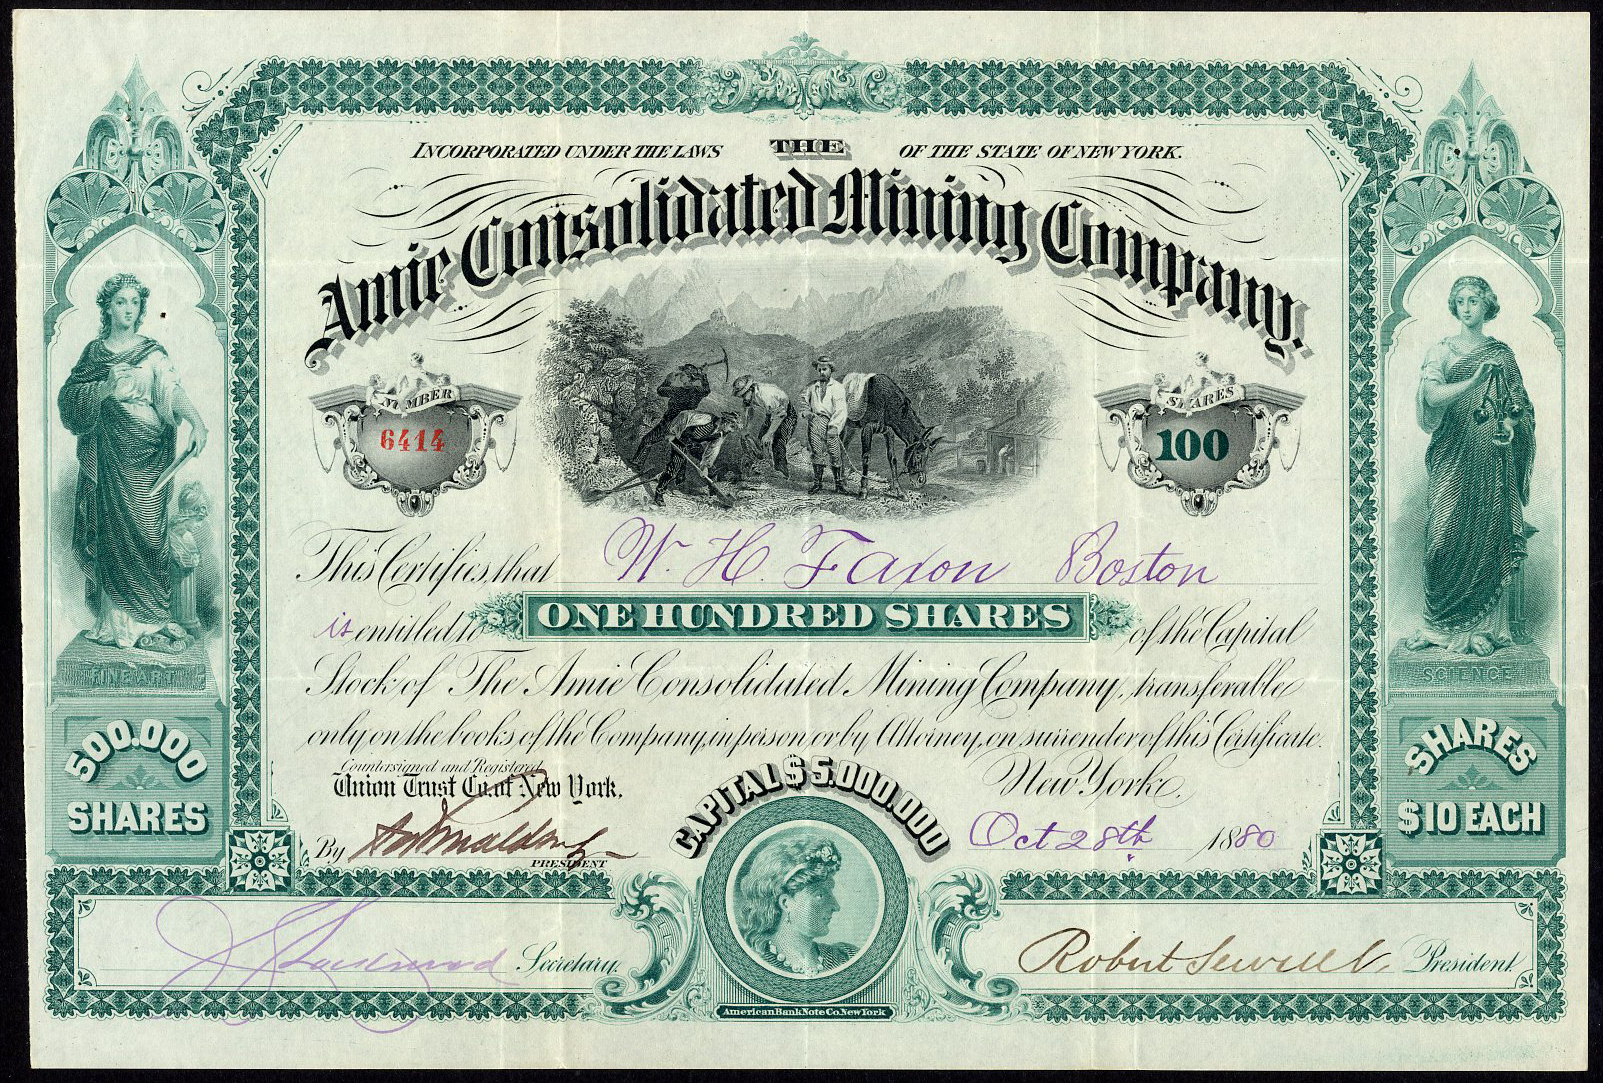 INCORPORATED UNDER THE LAWS THE OF THE STATE OF NEW YORK.
Amie Consolidated Mining Company.
NUMBER
6414
SHARES
100
This Certifies that W. H. Faxon Boston
is entitled to ONE HUNDRED SHARES of the Capital
Stock of The Amie Consolidated Mining Company, transferable
only on the books of the Company, in person or by Attorney, on surrender of this Certificate.
Countersigned and Registered
Union Trust Co. of New York.
New York,
By
PRESIDENT
CAPITAL $5.000.000
Oct 28th 1880
FINE ART
500.000
SHARES
SCIENCE
SHARES
$10 EACH
Secretary.
Robert Sewell, President.
American Bank Note Co. New York